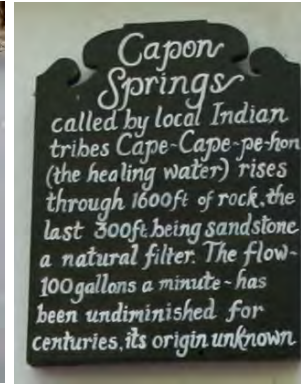 Capon
Springs
called by local Indian
tribes Cape-Cape-pe-hon
(the healing water) rises
through 1600ft of rock, the
last 300ft being sandstone
a natural filter. The flow-
100 gallons a minute - has
been undiminished for
centuries, its origin unknown